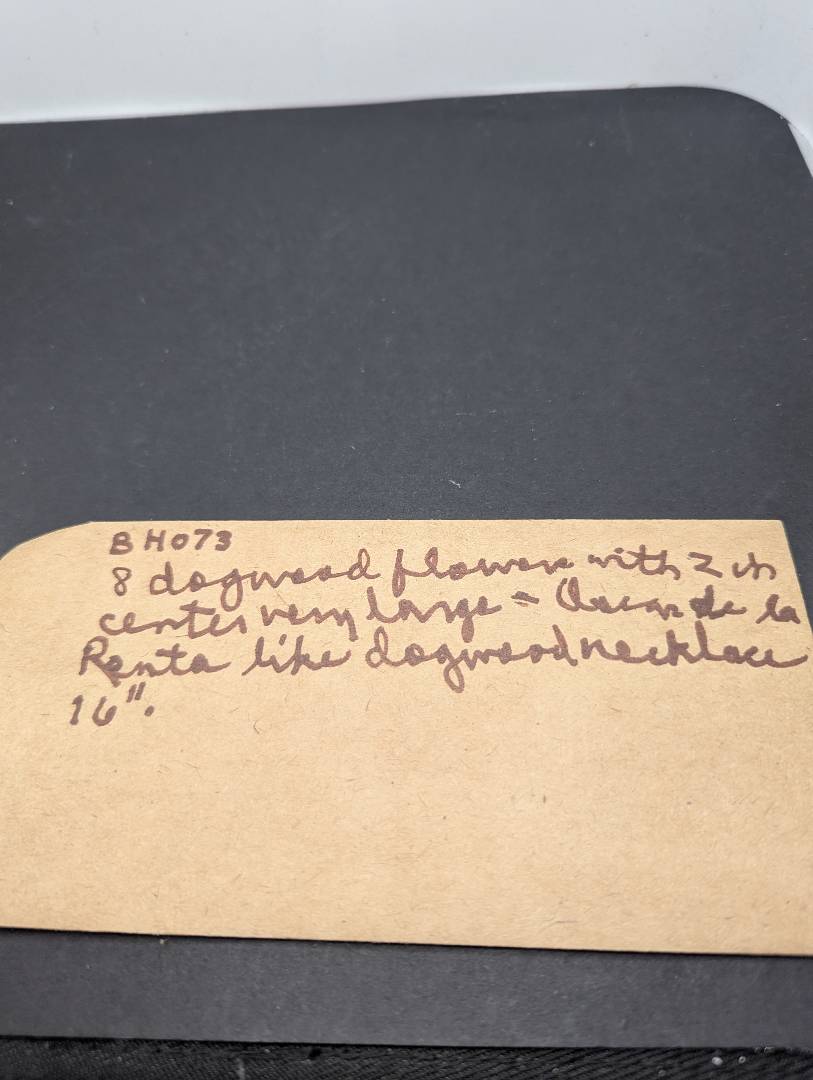 BH073
8 dogwood flowers with 2 in
center very large - Oscar de la
Renta like dogwood necklace
16".